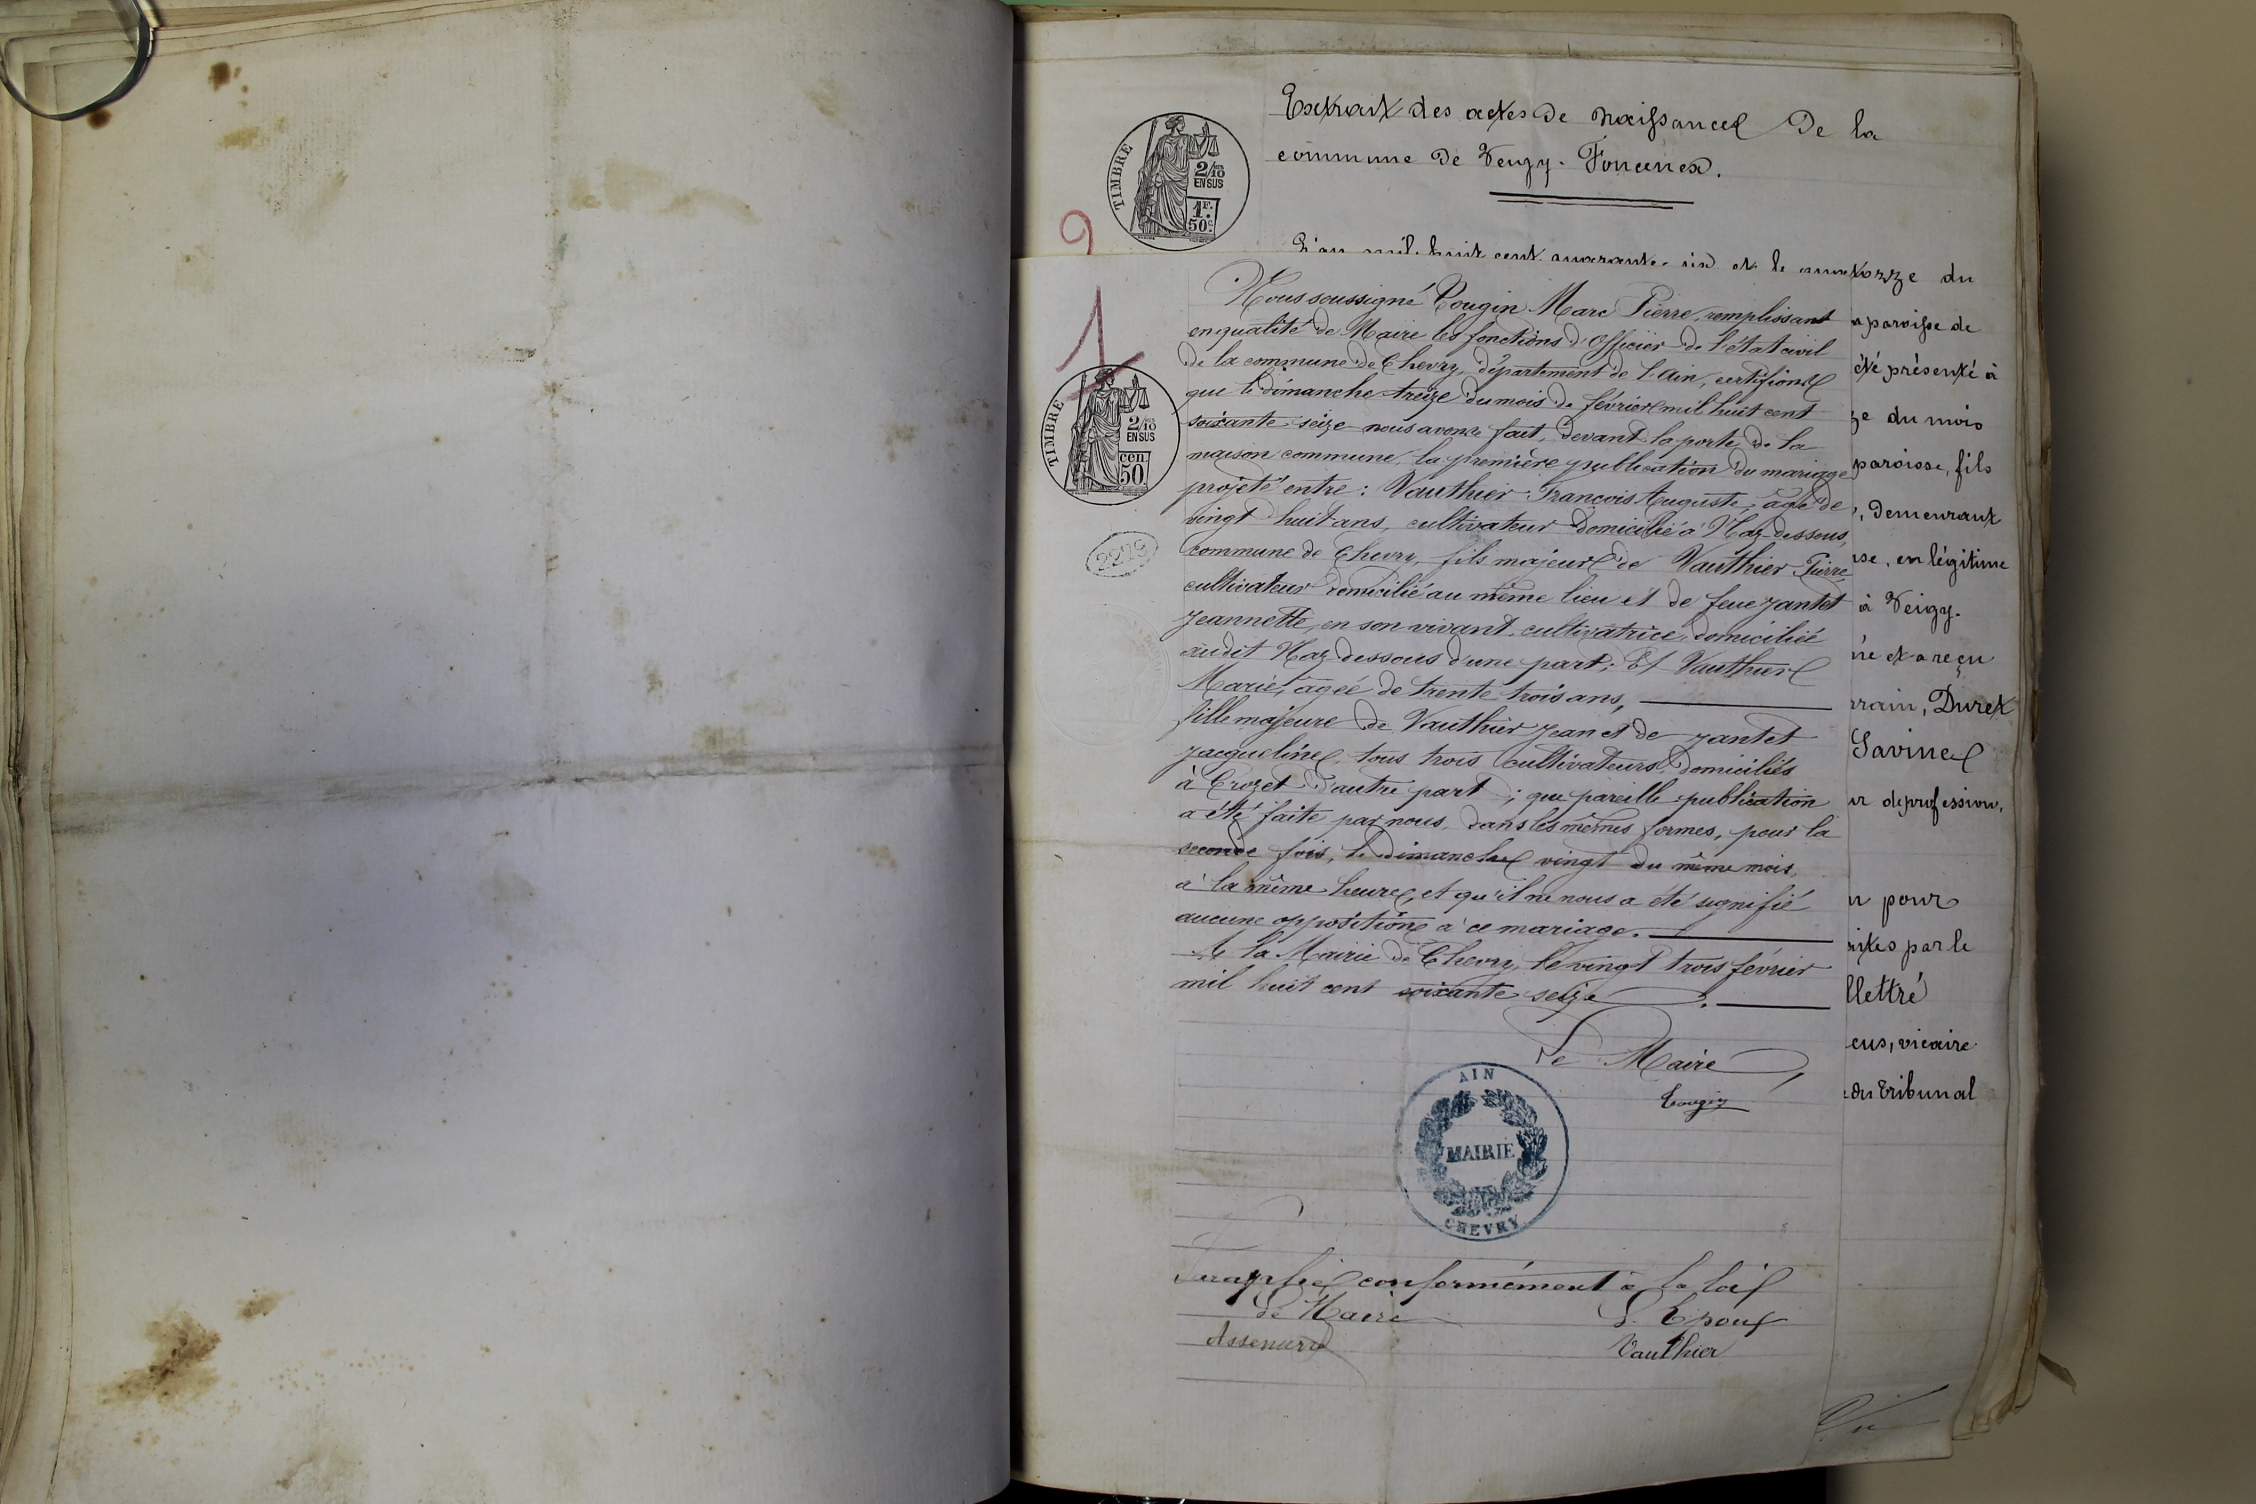 Extrait des actes de naissances de la
commune de Veigy-Foncenex.
TIMBRE
2/10
EN SUS
1F.
50c.
9
L'an mil huit cent quarante-six et le quatorze du
1
TIMBRE
2/10
EN SUS
cen.
50
2279
Nous soussigné Gougin Marc Pierre, remplissant
en qualité de Maire les fonctions d'Officier de l'état civil
de la commune de Chevry, département de l'Ain, certifions
que le dimanche treize du mois de février mil huit cent
soixante seize nous avons fait, devant la porte de la
maison commune, la première publication du mariage
projeté entre : Vauthier François Auguste, âgé de
vingt huit ans, cultivateur domicilié à Naz-dessous,
commune de Chevry, fils majeur de Vauthier Pierre,
cultivateur domicilié au même lieu et de feue Jantet
Jeannette, en son vivant cultivatrice, domiciliée
audit Naz-dessous d'une part; Et Vauthier
Marie, agée de trente trois ans,
fille majeure de Vauthier Jean et de Jantet
Jacqueline, tous trois cultivateurs domiciliés
à Crozet d'autre part ; que pareille publication
a été faite par nous, dans les mêmes formes, pour la
seconde fois, le Dimanche vingt du même mois,
à la même heure, et qu'il ne nous a été signifié
aucune opposition à ce mariage.
A la Mairie de Chevry, le vingt trois février
mil huit cent soixante seize.
Le Maire
Gougin
AIN
MAIRIE
CHEVRY
Paraphé conformément à la loi
Le Maire
L. Epoux
Assenard
Vauthier
a paroisse de
été présenté à
ze du mois
paroisse, fils
, demeurant
se, en légitime
à Veigy.
né et a reçu
rrain, Duret
Savine
ur de profession,
n pour
rites par le
llettré
cus, vicaire
du tribunal